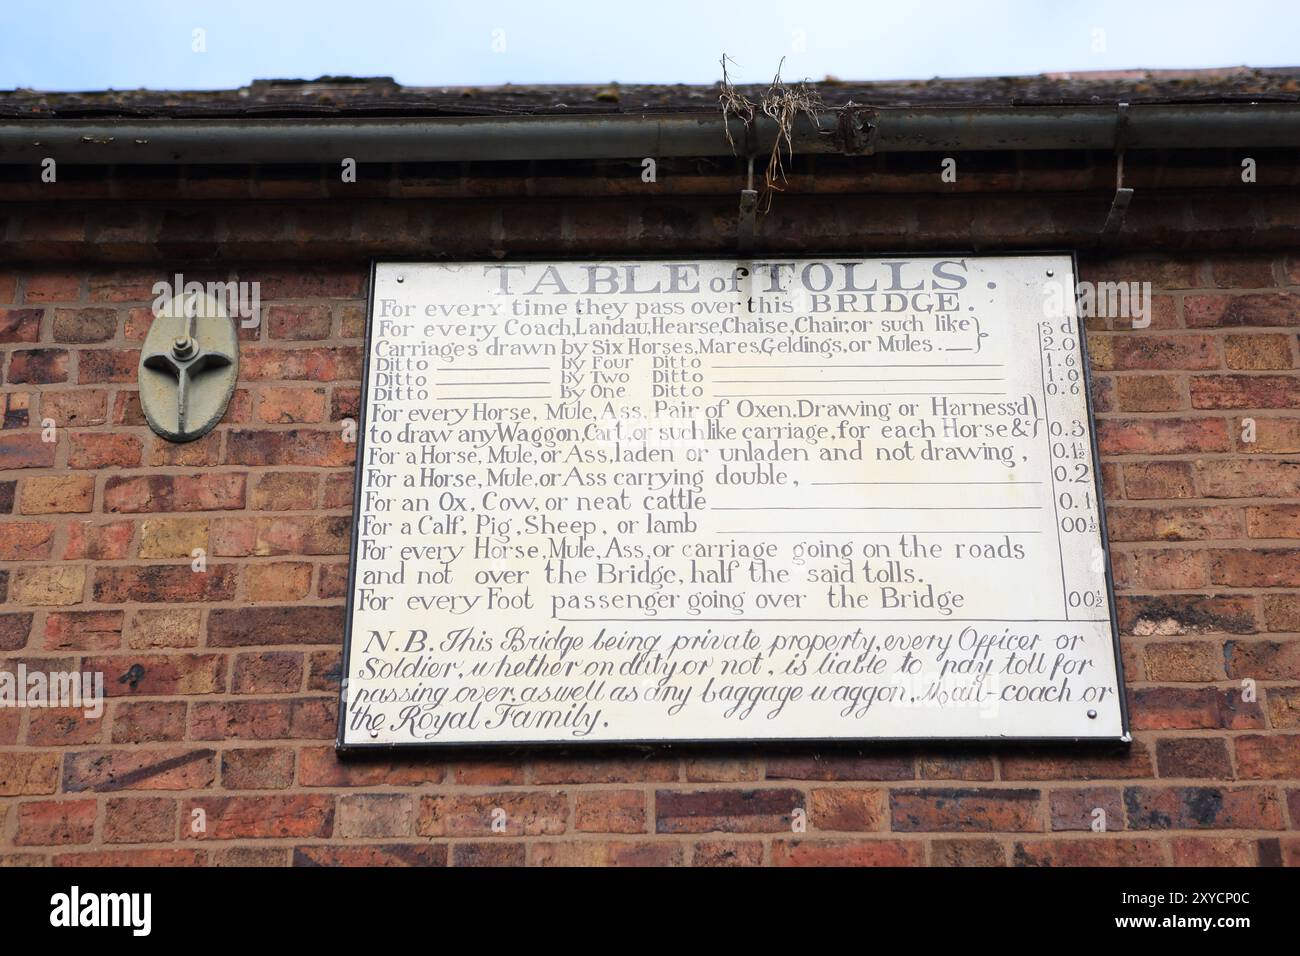 TABLE of TOLLS.
For every time they pass over this BRIDGE.
For every Coach, Landau, Hearse, Chaise, Chair, or such like } s d
Carriages drawn by Six Horses, Mares, Geldings, or Mules. 2.0
Ditto by Four Ditto 1.6
Ditto by Two Ditto 1.0
Ditto by One Ditto 0.6
For every Horse, Mule, Ass, Pair of Oxen, Drawing or Harness'd
to draw any Waggon, Cart, or such like carriage, for each Horse &c 0.3
For a Horse, Mule, or Ass, laden or unladen and not drawing, 0.1½
For a Horse, Mule, or Ass carrying double, 0.2
For an Ox, Cow, or neat cattle 0.1
For a Calf, Pig, Sheep, or lamb 00½
For every Horse, Mule, Ass, or carriage going on the roads
and not over the Bridge, half the said tolls.
For every Foot passenger going over the Bridge 00½
N.B. This Bridge being private property, every Officer or
Soldier, whether on duty or not, is liable to pay toll for
passing over, as well as any baggage waggon, Mail-coach or
the Royal Family.
alamy
Image ID: 2XYCP0C
www.alamy.com